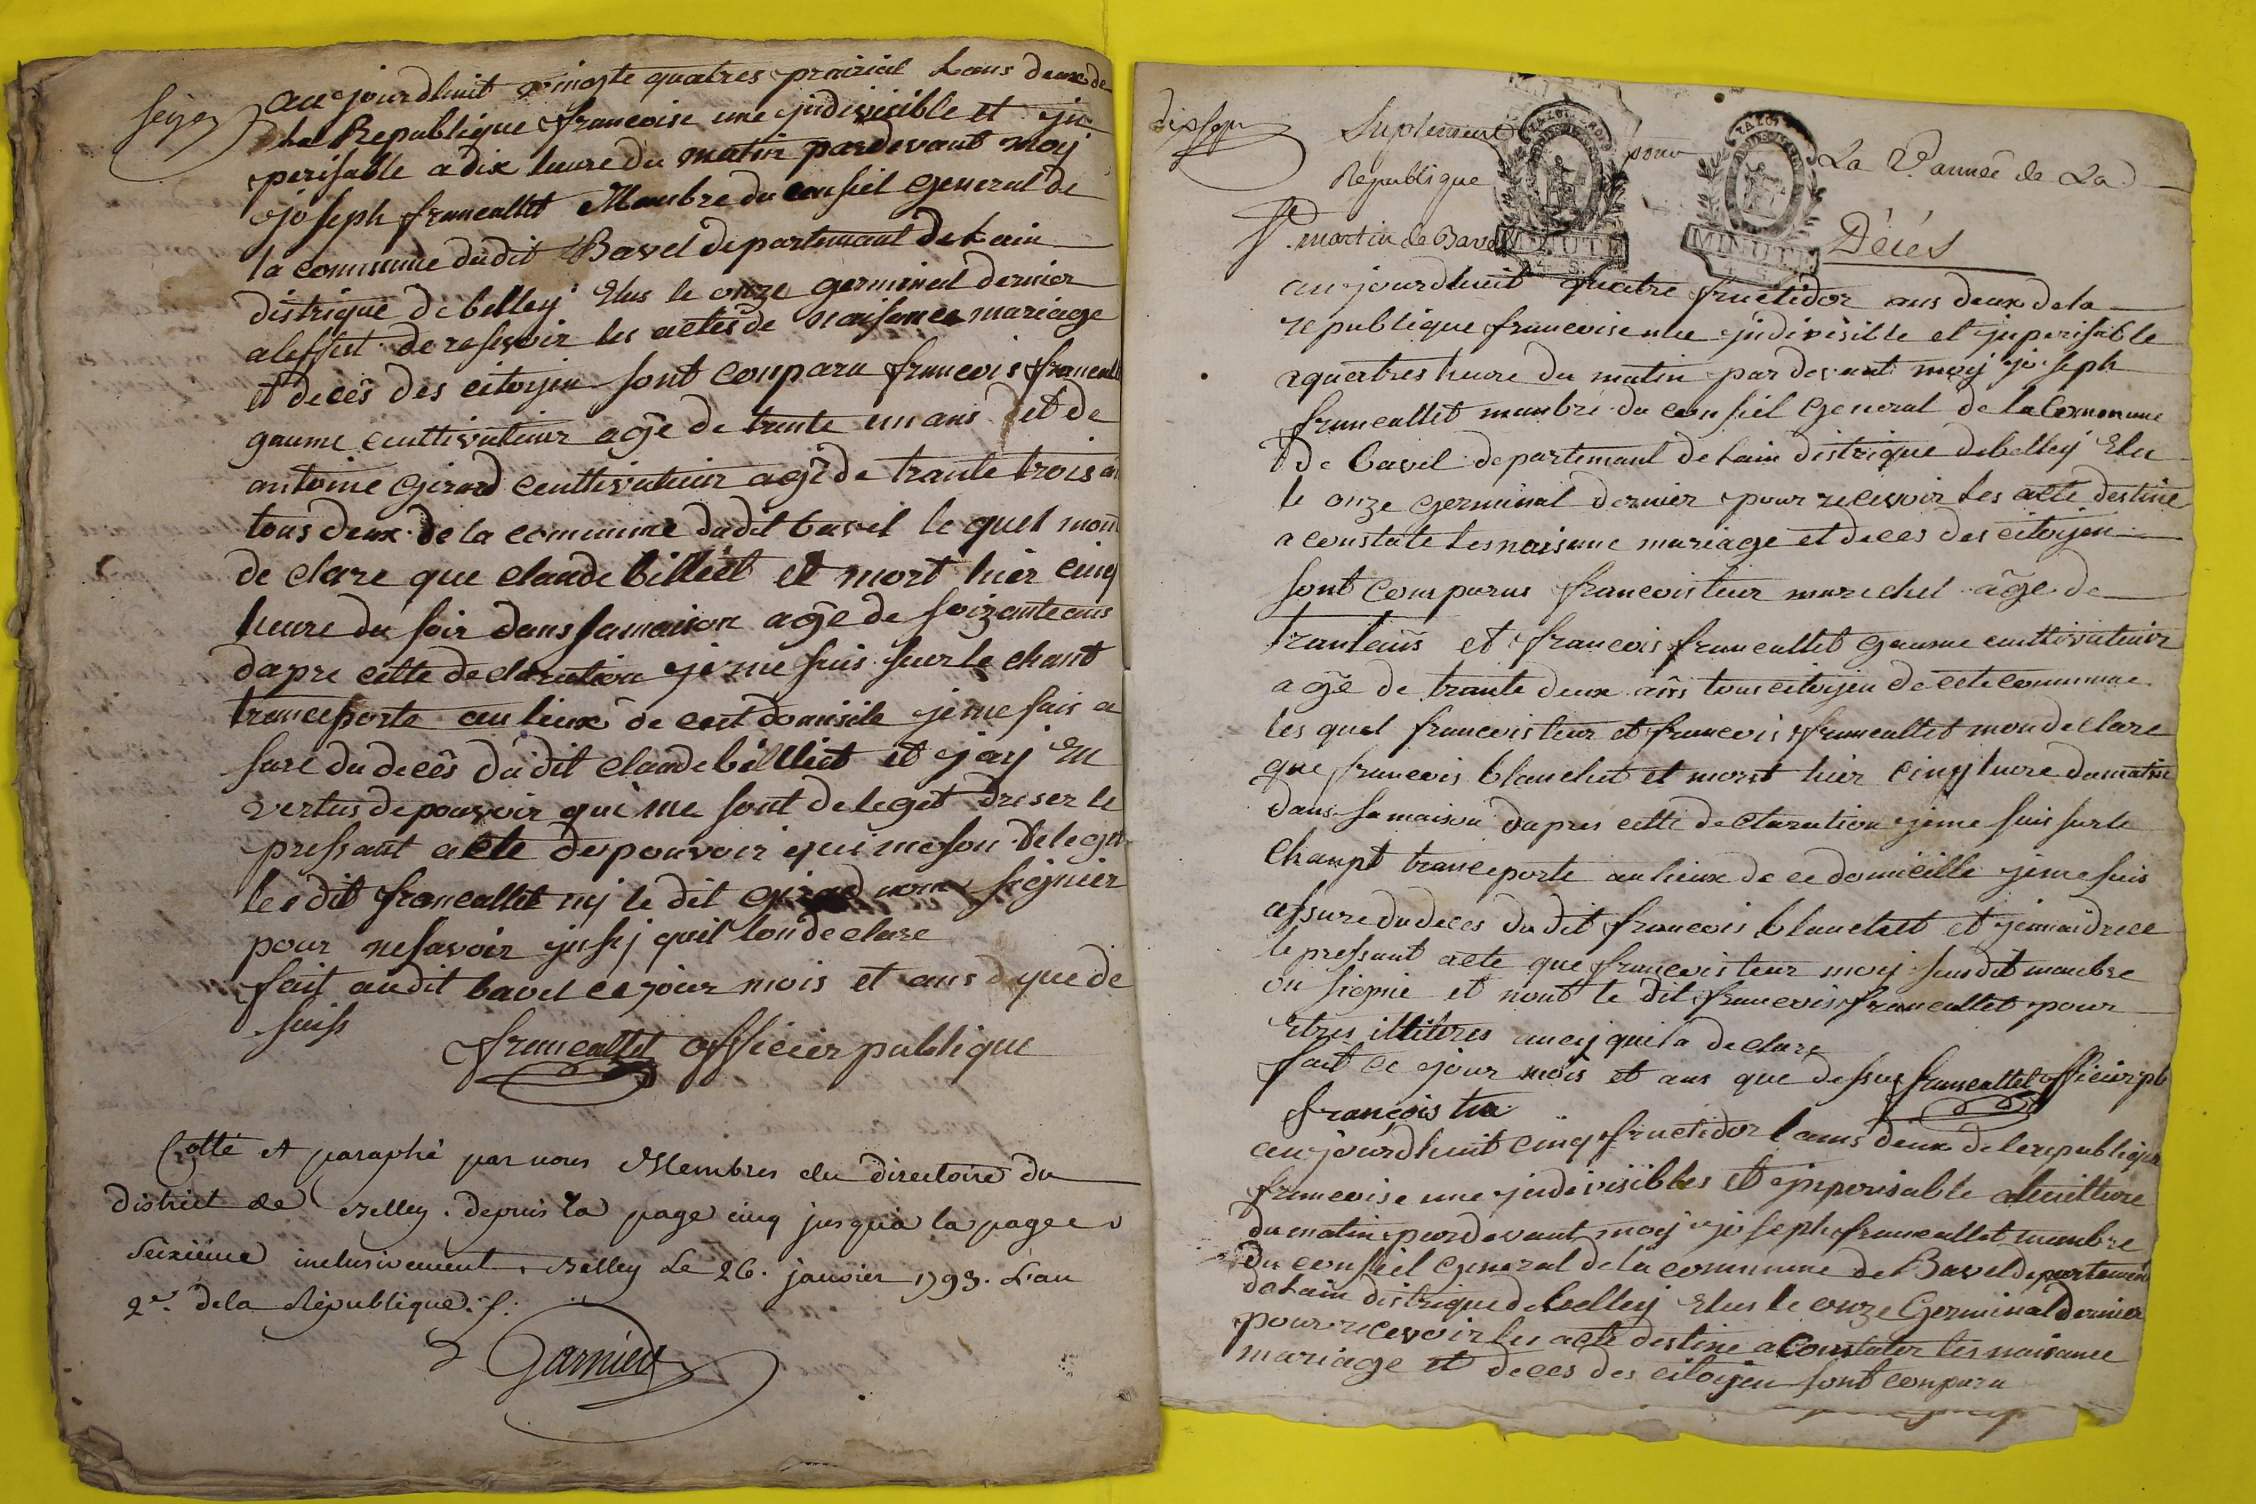 Seize
aujourdhuit vingte quatres prairial Lans deux de
La Republique francoise une jndivicible et jn
perisable a dix heure du matin pardevant moy
joseph francallet Manbre du consiel general de
la commune dudit Bavel departemant de Lain
distrique de belley Elus le onze germinal dernier
aleffest de resevoir les actes de naisance mariage
et decês des citoyen sont conpara francois francallet
gaume cultivateur agê de trante un ans et de
antoine Girard cultivateur agê de trante trois an
tous deux de la commune dudit bavel le quel mont
de clare que claude billiet et mort hier cinq
heure du soir dans samaison agê de soizante ans
dapre cette declaration je me suis sur le chant
tranceporte au lieux de cest domicile je me suis a
sure du decês du dit claude billiet et jay En
vertus de pouvoir qui me sont deleget dreser le
pressant acte des pouvoir qui me son delegue
les dit francallet ny le dit girard nont signier
pour ne savoir jnsy quil lon declare
fait audit bavel ce jour mois et ans que de
suis
francallet officier publique
Cotté et paraphé par nous Membres du directoire du
District de Belley depuis la page cinq jusqu'à la page
Seizième inclusivement, Belley Le 26. janvier 1793. L'an
2e. de la République. f.
Garnier
dixsept
Suplement pour La 2e. année de La
République
St. martin de Bavel
MINUTE
4 S.
MINUTE
4 S.
Décés
aujourdhuit quatre fructidor ans deux de la
republique francoise une jndivisible et jnperisable
a quatres heure du matin par devant moy joseph
francallet manbre du consiel general de la Commune
de bavel departemant de Lain distrique de belley Elu
le onze germinal dernier pour recevoir les acte destine
a constate les naisance mariage et deces des citoyen
sont comparus francois teur marechel âgê de
trante ans et francois francallet gaume cultivateur
agê de trante deux ans tous citoyen de cete commune
les quel francois teur et francois francallet mon declare
que francois blanchet et mort hier cinq heure du matin
dans samaison dapres cette declaration je me suis sur le
champt tranceporte au lieux de ce domicille je me suis
assure du deces du dit francois blanchet et jennai drece
le pressant acte que francois teur moy susdit manbre
on signie et nont le dit francois francallet pour
Etres illiteres ancy quil a declare
fait ce jour mois et ans que dessus francallet officier pb
françois teur
aujourdhuit cinq fructidor lans deux de la republique
francoise une jndevisibles et jnperisable a huit heure
du matin pardevant moy joseph francallet manbre
du consiel general de la commune de Bavel departement
de Lain distrique de belley Elus le onze Germinal dernier
pour recevoir les acte destine a constater les naisance
mariage et deces des citoyen sont conpara